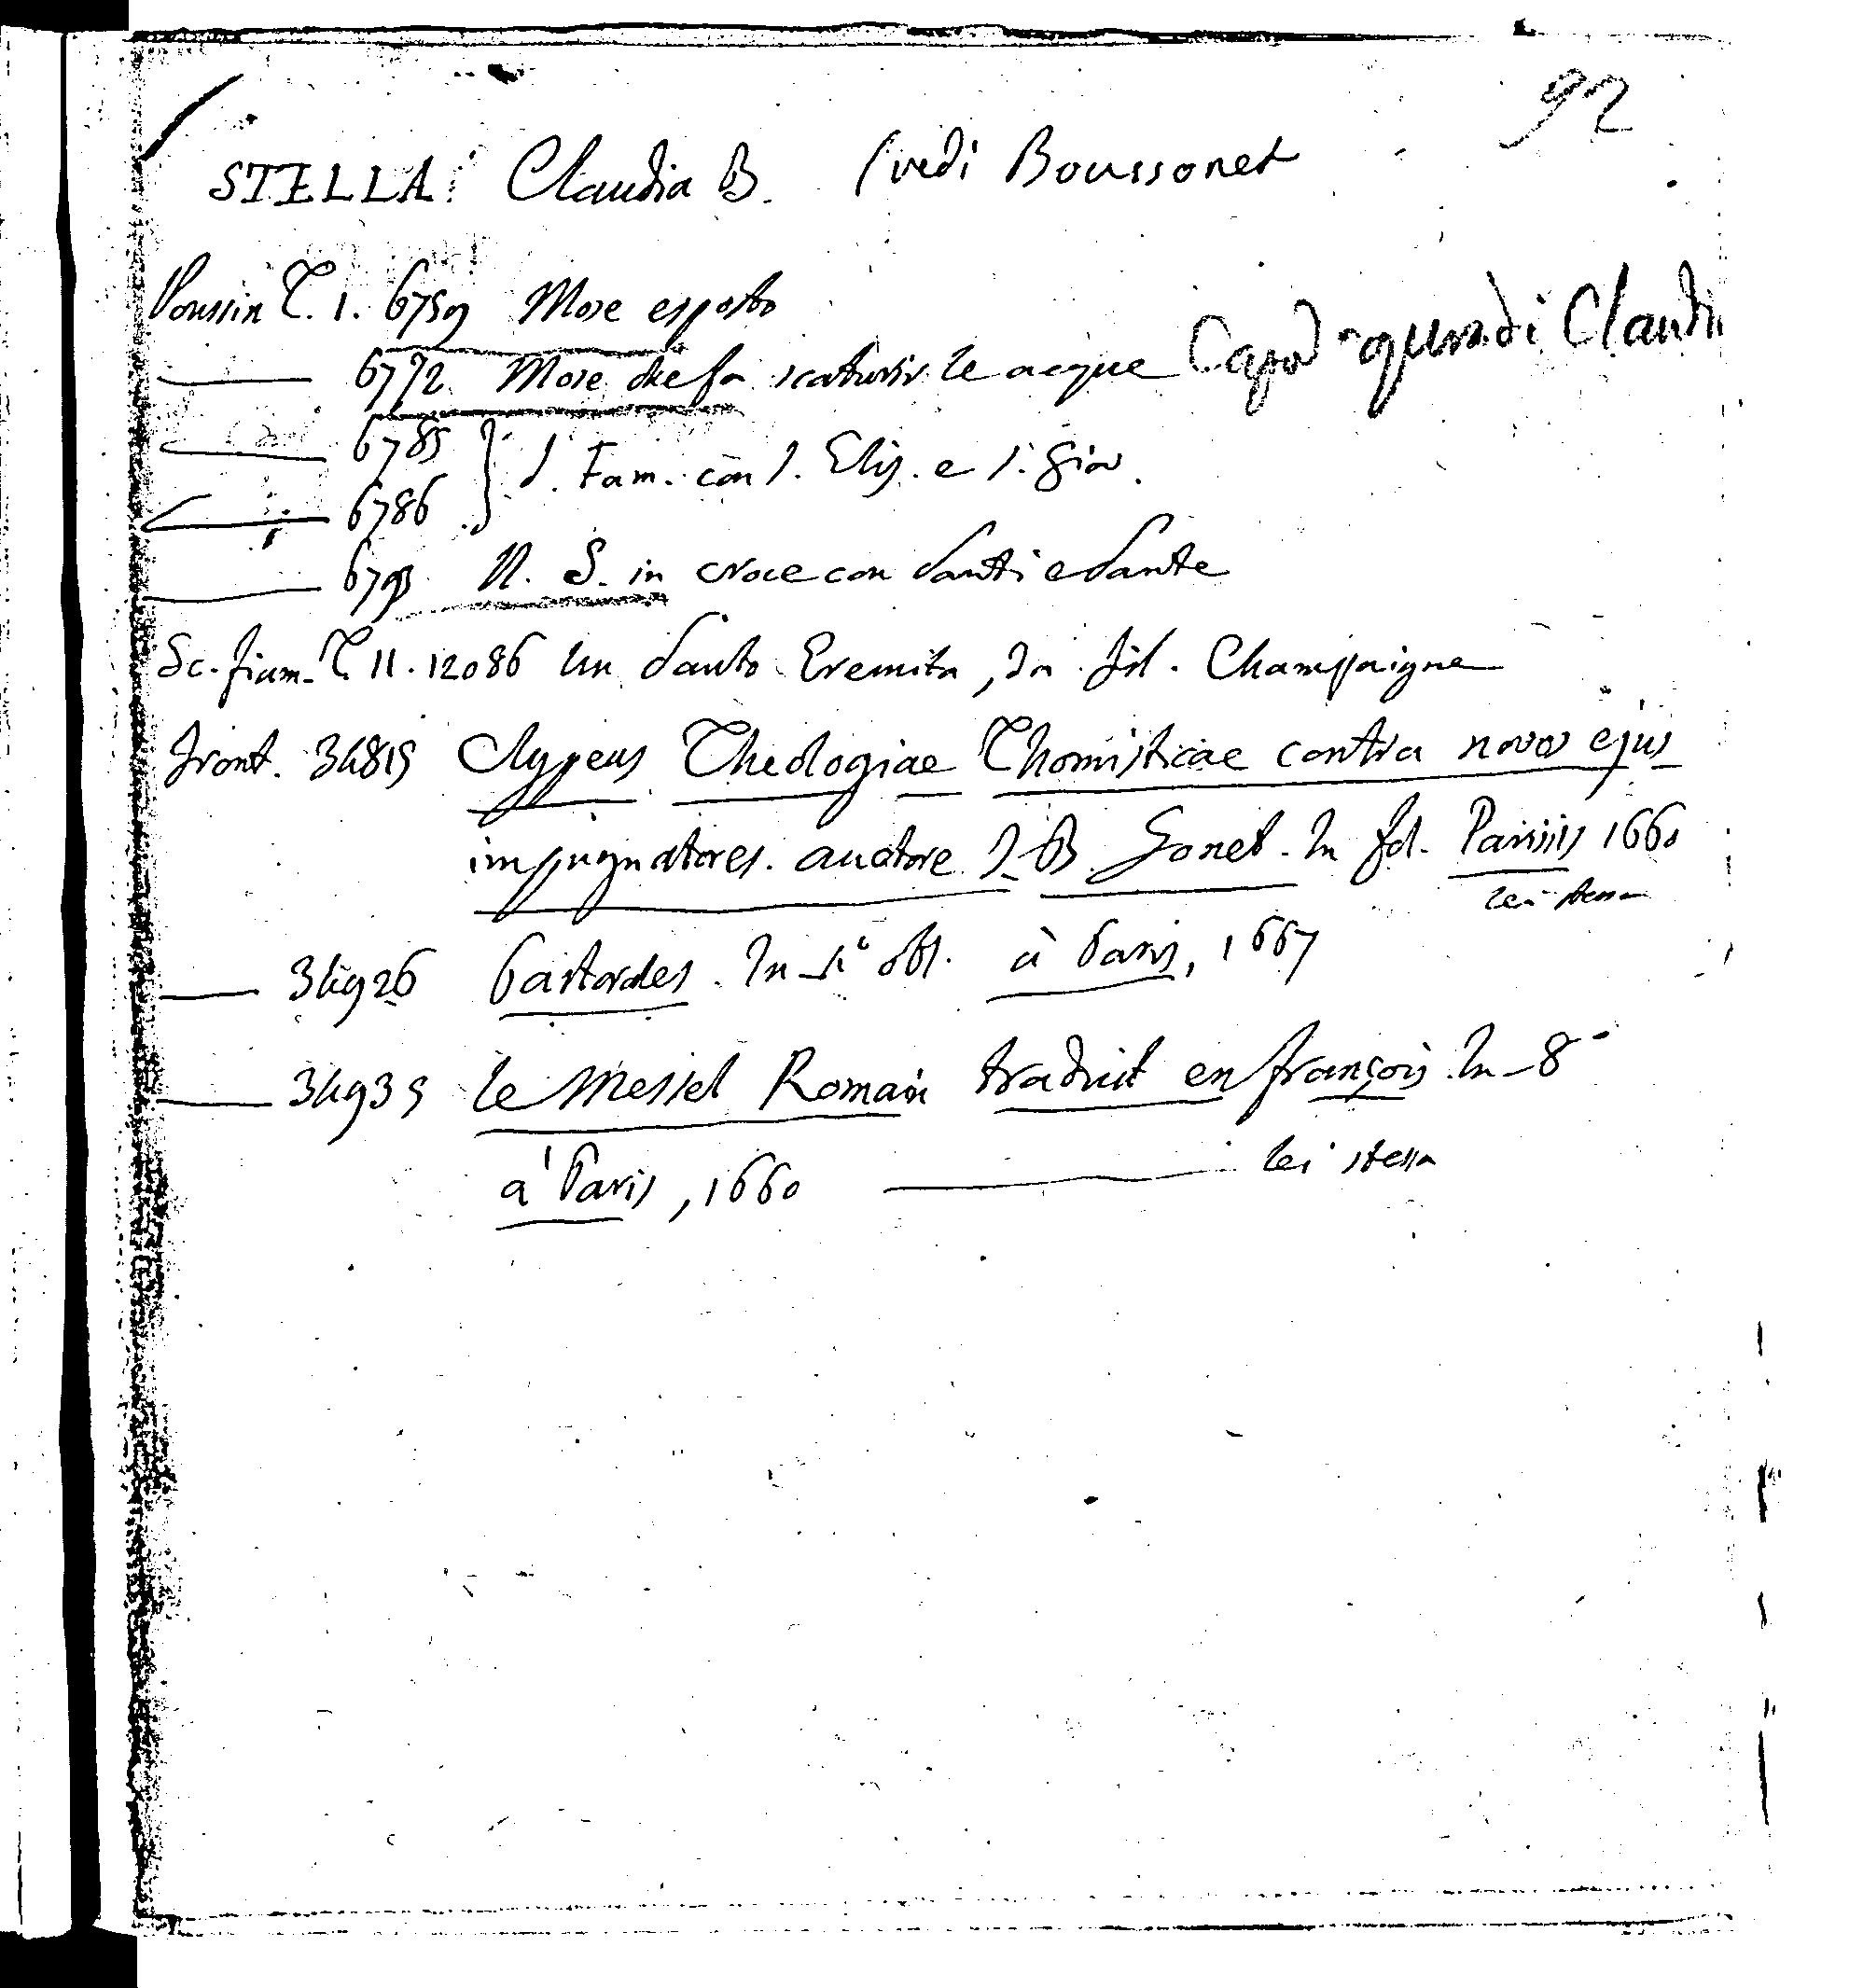 92
STELLA. Claudia B. (vedi Boussonet
Poussin T. 1. 6759 Mosè esposto
6772 Mosè che fa scaturir le acque Capo d'opera di Claudia
6785
6786 } S. Fam. con S. Elis. e S. Giov.
6793 N. S. in croce con Santi e Sante
Sc. fiam. T. 11. 12086 Un Santo Eremita, da Fil. Champaigne
Front. 34815 Clypeus Theologiae Thomisticae contra novos ejus
impugnatores. auctore J. B. Gonet. In fol. Parisiis 1660
lei stessa
34926 Pastorales. In 4° obl. à Paris, 1667
34935 Le Messel Romain traduit en françois. In-8°
à Paris, 1660 lei stessa